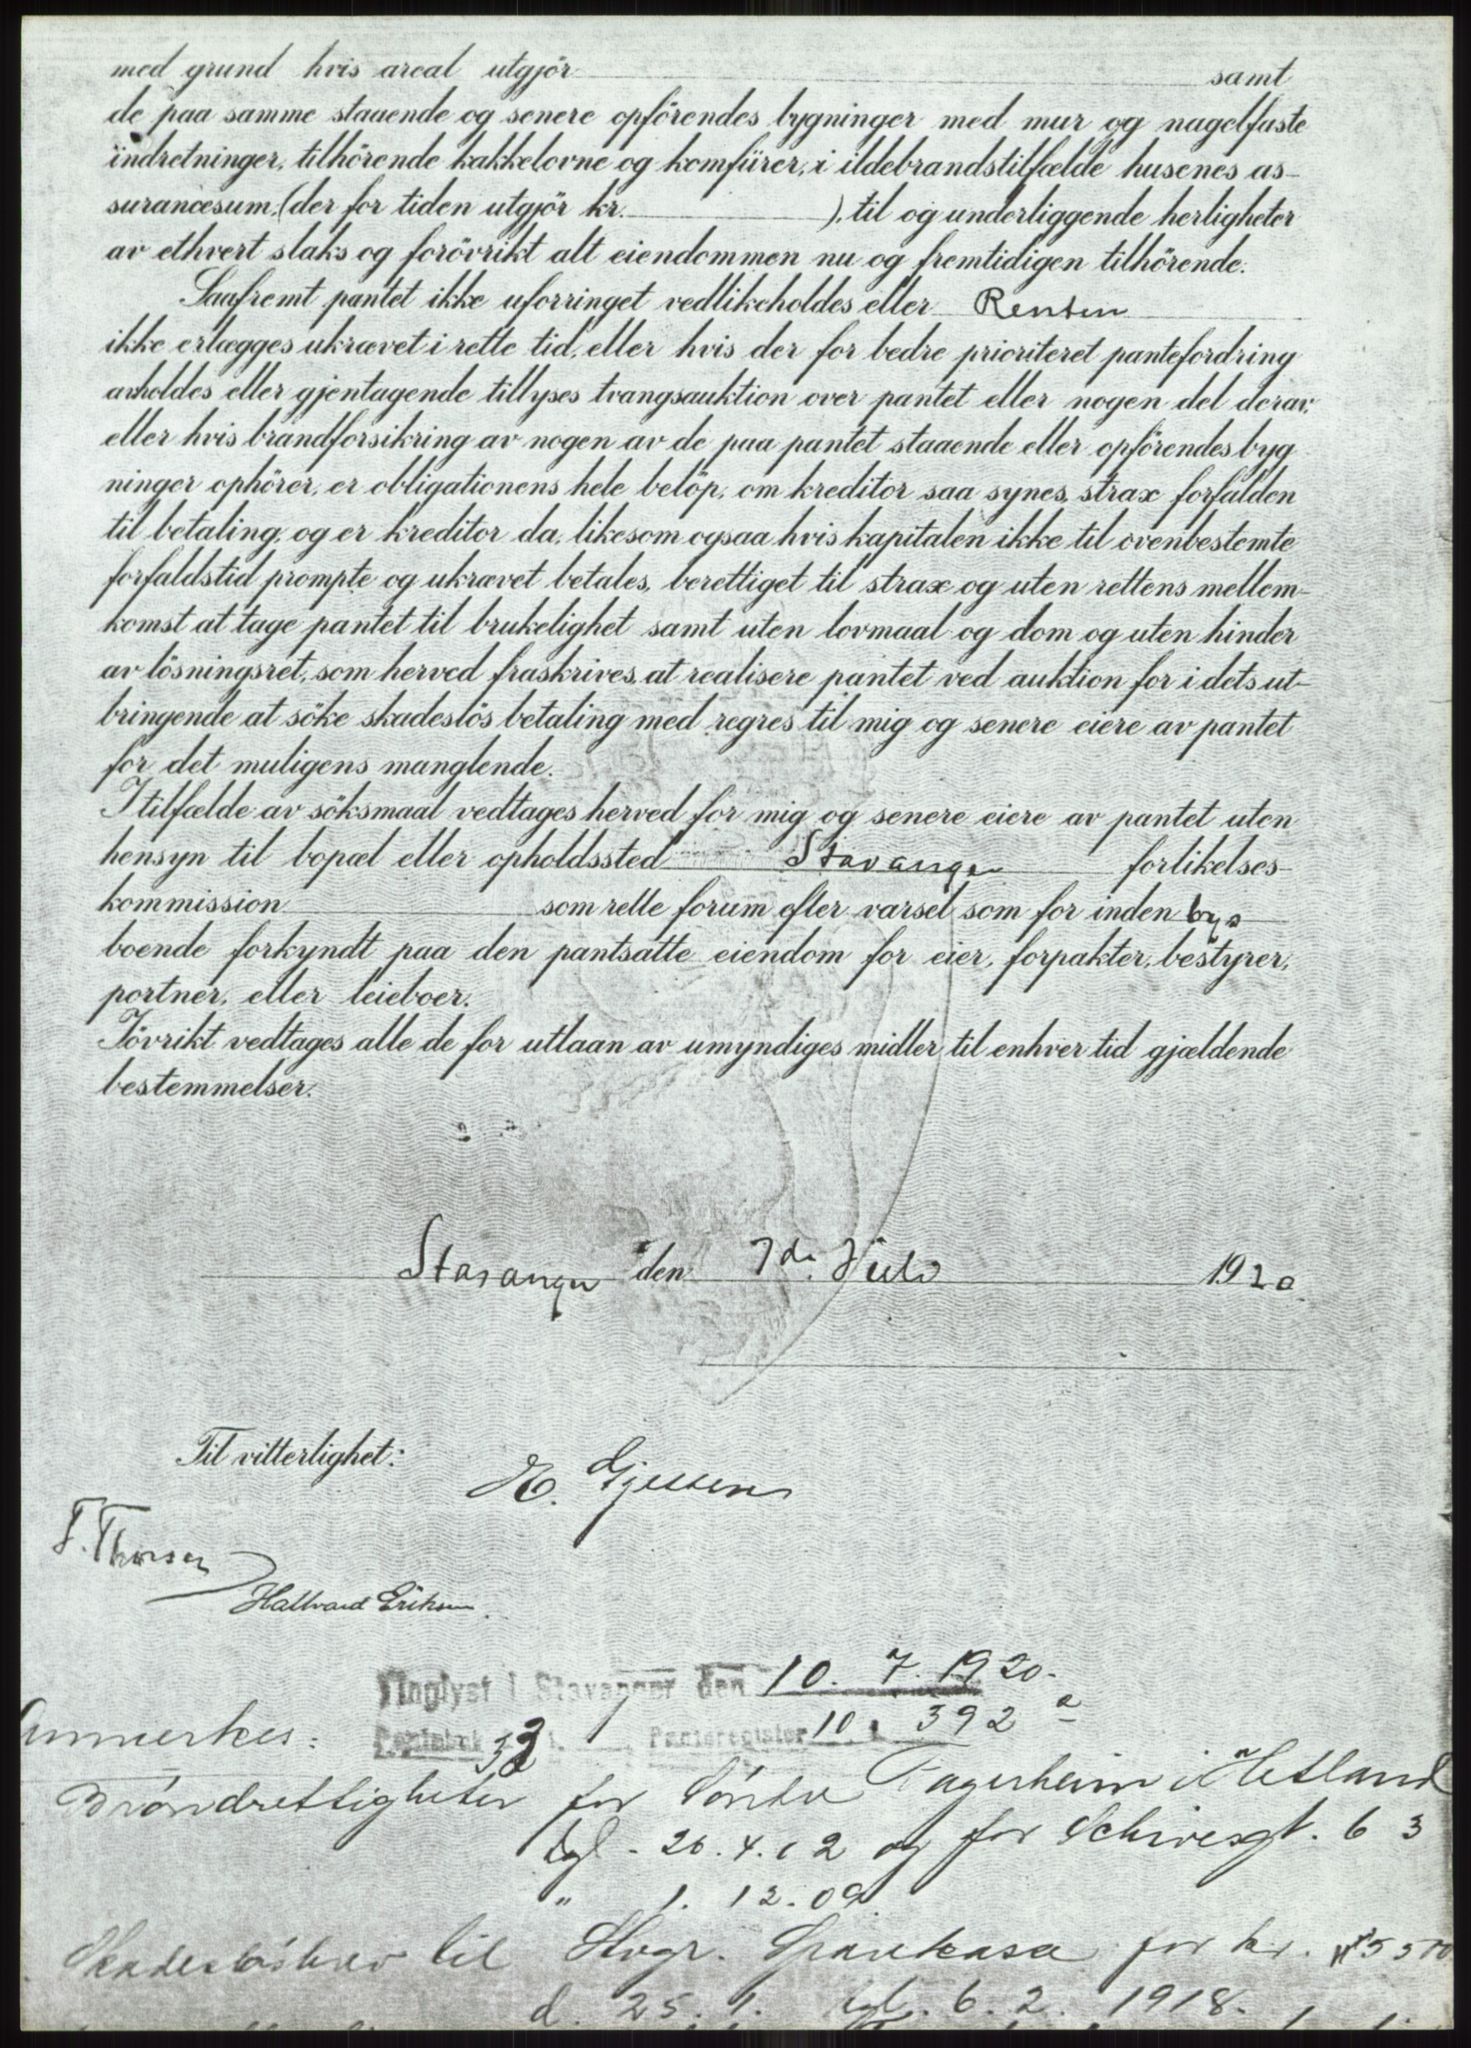 med grund hvis areal utgjör samt
de paa samme staaende og senere opförendes bygninger med mur og nagelfaste
indretninger, tilhörende kakkelovne og komfürer, i ildebrandstilfælde husenes as-
surancesum, (der for tiden utgjör kr. ), til og underliggende herligheter
av ethvert slaks og forövrikt alt eiendommen nu og fremtidigen tilhörende.
Saafremt pantet ikke uforringet vedlikeholdes eller Renten
ikke erlægges ukrævet i rette tid, eller hvis der for bedre prioriteret pantefordring
avholdes eller gjentagende tillyses tvangsauktion over pantet eller nogen del derav,
eller hvis brandforsikring av nogen av de paa pantet staaende eller opförendes byg
ninger ophörer, er obligationens hele belöp, om kreditor saa synes, strax forfalden
til betaling, og er kreditor da, likesom ogsaa hvis kapitalen ikke til ovenbestemte
forfaldstid prompte og ukrævet betales, berettiget til strax og uten rettens mellem-
komst at tage pantet til brukelighet samt uten lovmaal og dom og uten hinder
av lösningsret, som herved fraskrives, at realisere pantet ved auktion for i dets ut-
bringende at söke skadeslös betaling med regres til mig og senere eiere av pantet
for det muligens manglende.
I tilfælde av söksmaal vedtages herved for mig og senere eiere av pantet uten
hensyn til bopæl eller opholdssted Stavanger forlikelses-
kommission som rette forum efter varsel som for inden bys
boende forkyndt paa den pantsatte eiendom for eier, forpakter, bestyrer,
portner, eller leieboer.
Iövrikt vedtages alle de for utlaan av umyndiges midler til enhver tid gjældende
bestemmelser.
Stavanger den 7de Juli 1920
Til vitterlighet:
H. Gjessen
T. Thorsen
Hallvard Eriksen.
Tinglyst i Stavanger den 10. 7. 1920.
Anmerkes:
Pantebok 33 Panteregister 10. 392 a
Brøndrettigheter for Söndre Fagerheim i Hetland
tgl. 26.4.02 og for Schivesgt. 63
" 1. 12. 09
Skadeslösbrev til Stvgr. Sparekasse for kr.
d. 25. 1. tgl. 6. 2. 1918.